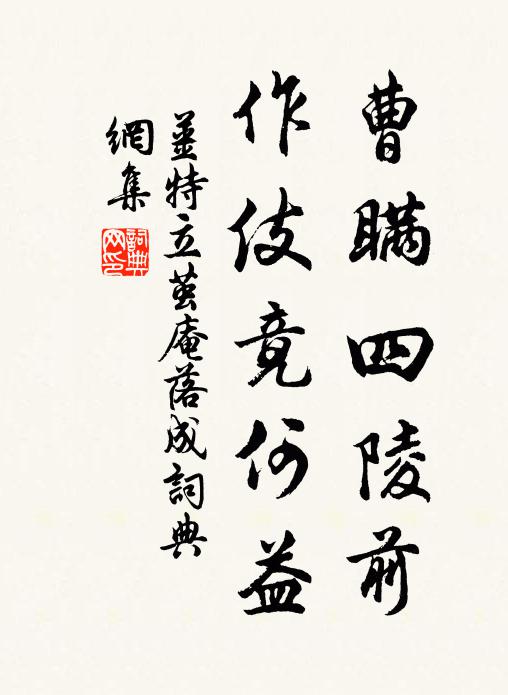 曹瞞四陵前
作伎竟何益
姜特立茧庵落成詞典
網集
詞典
网印